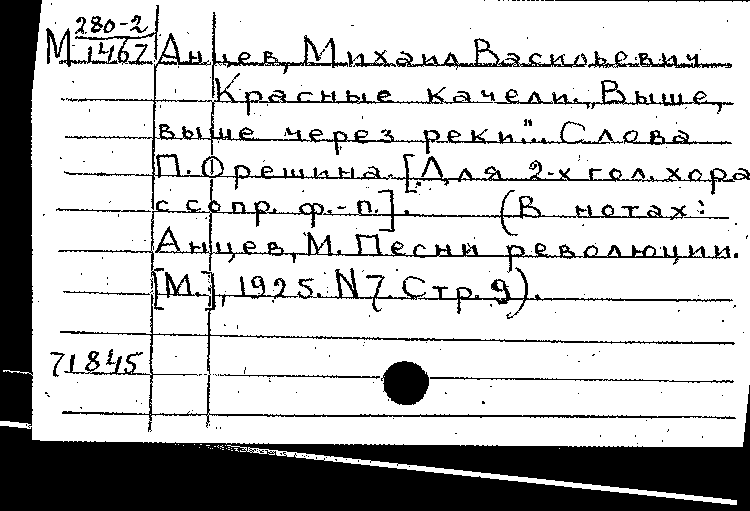 М 280-2
1467 Анцев, Михаил Васильевич
Красные качели. „Выше,
выше через реки"... Слова
П. Орешина. [Для 2-х гол. хора
с сопр. ф.-п.]. (В нотах:
Анцев, М. Песни революции.
[М.], 1925. N 7. Стр. 9).
71845